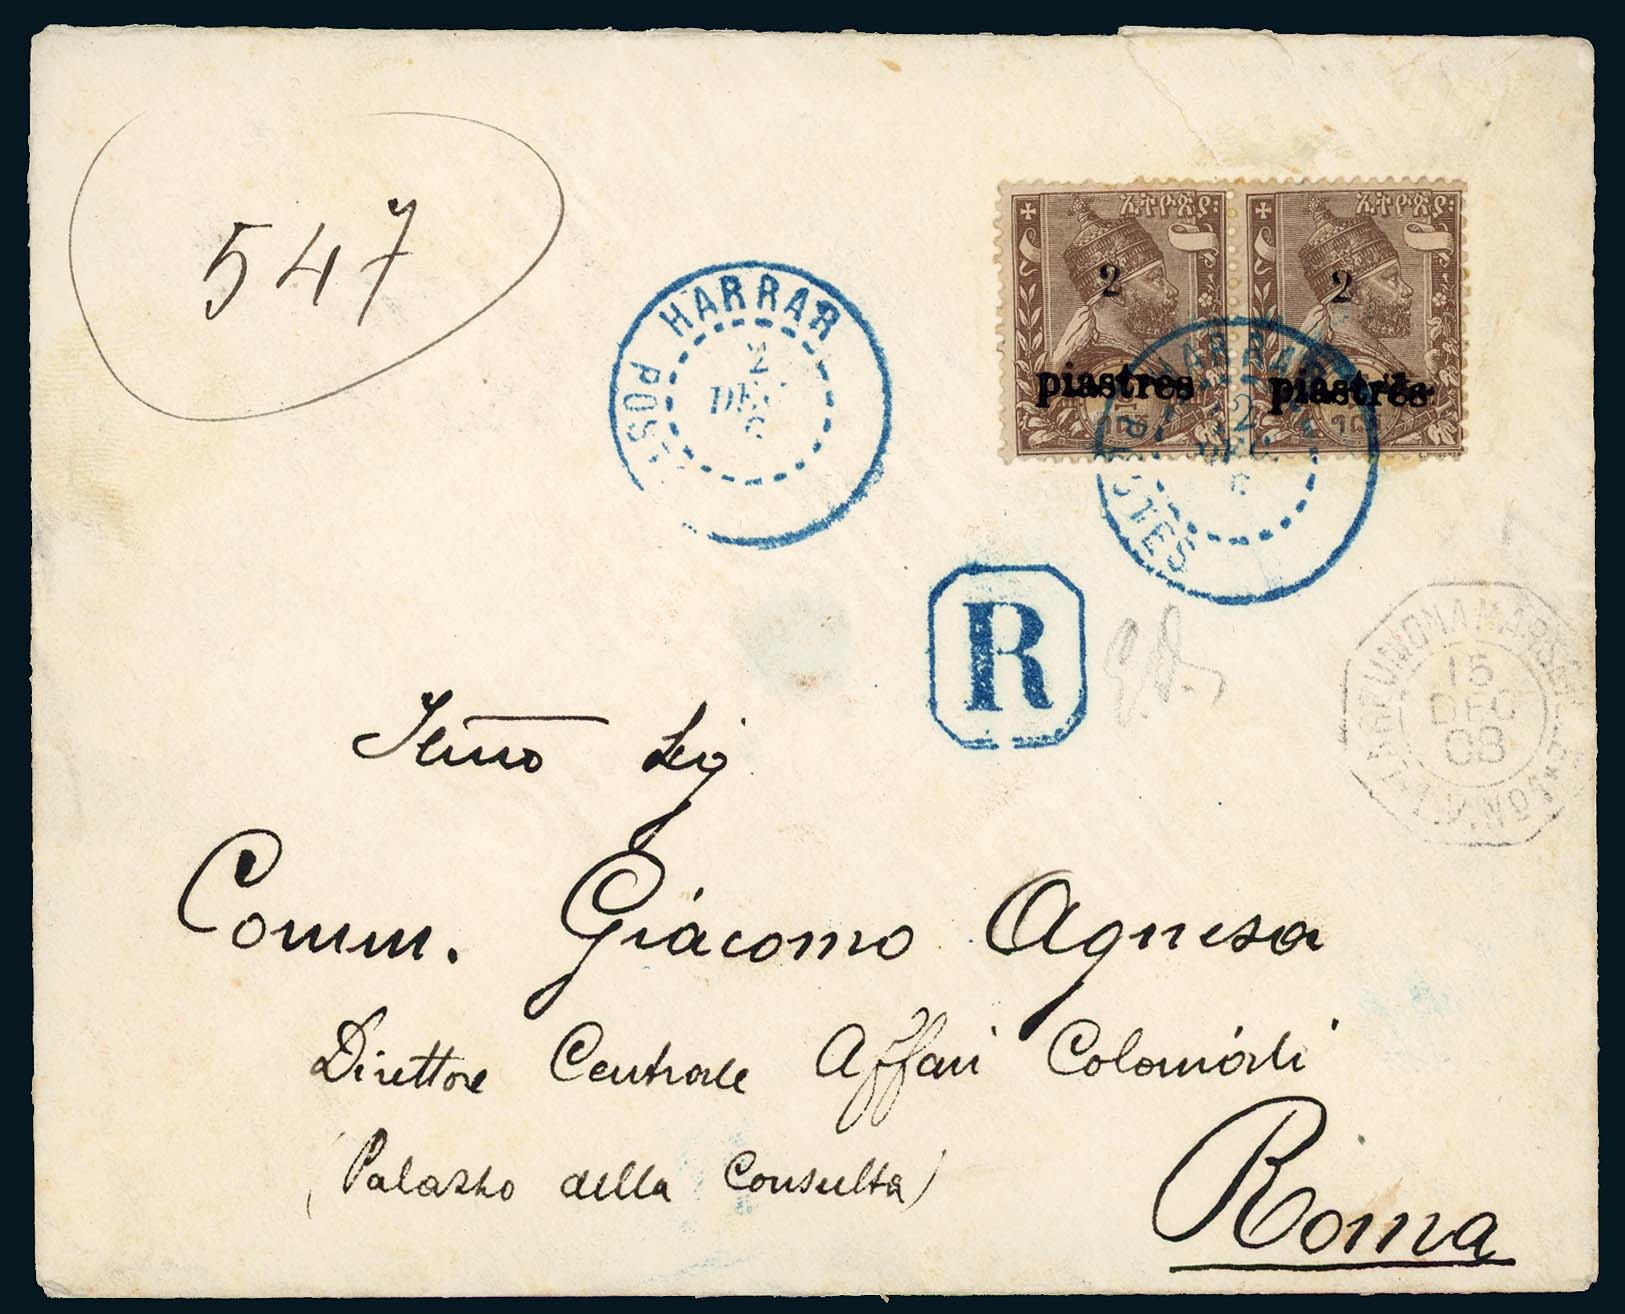 547
ኢትዮጵያ፡ ኢትዮጵያ፡
2 2
piastres piastres
HARRAR
POST
2
DEC
HARRAR
POSTES
2
DEC
R
15
DEC
08
Illmo Sig
Comm. Giacomo Agnesa
Direttore Centrale Affari Coloniali
(Palazzo della Consulta)
Roma